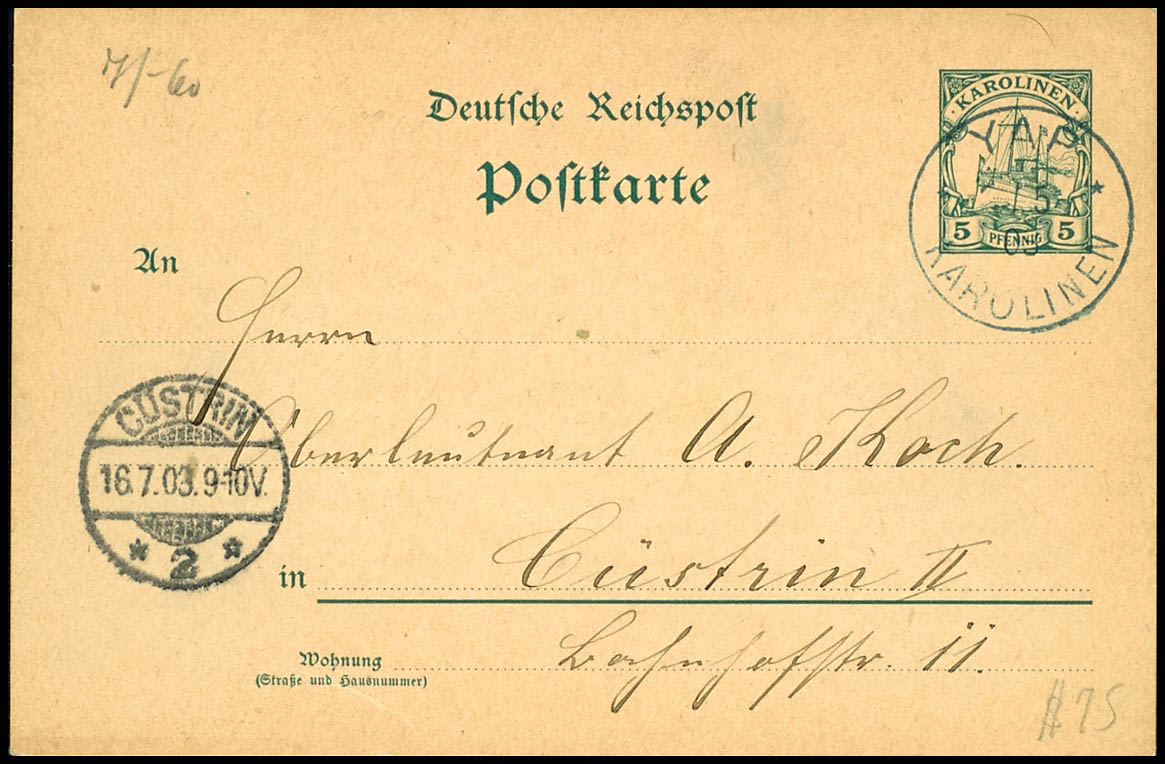 7/-60
Deutsche Reichspost
Postkarte
KAROLINEN
5 PFENNIG 5
YAP
1 5
03
KAROLINEN
An
Herrn
Oberleutnant A. Koch.
CÜSTRIN
16.7.03.9-10V.
* 2 *
in Cüstrin II
Wohnung Bahnhofstr. 11.
(Straße und Hausnummer)
75